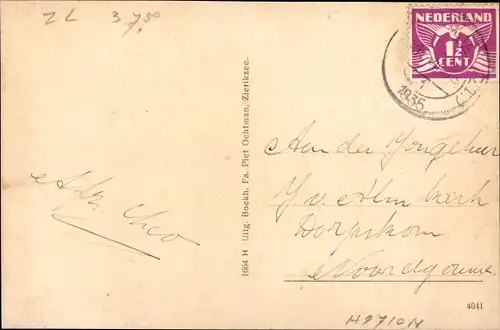 ZL 3 7,50
NEDERLAND
1½
CENT
1935
1664 H Uitg. Boekh. Fa. Piet Ochtman, Zierikzee.
Aan den Jongeheer
J v. Alm
Dorpskom
Noordgouwe
4041
H9710M